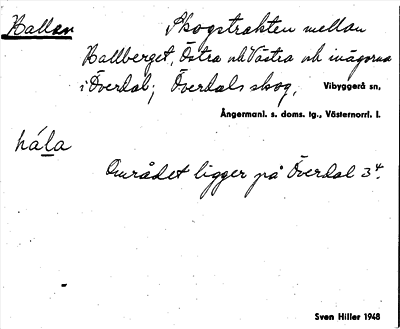 Hallan Skogstrakten mellan
Hallberget, Östra och Västra och inägorna
i Överdal; Överdals skog, Vibyggerå sn,
Ångermanl. s. doms. tg., Västernorrl. l.
håla
Området ligger på Överdal 3⁴.
Sven Hiller 1948